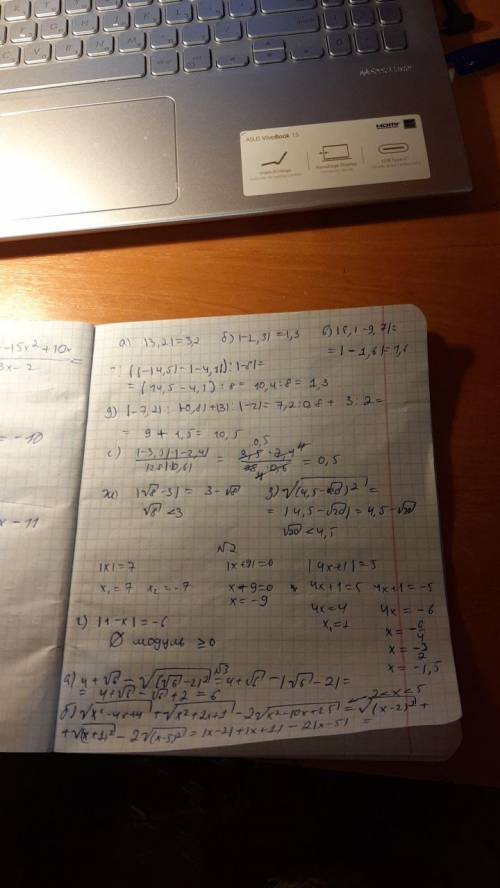 ASUS VivoBook 15
HDMI
-15x² + 10x
3x - 2
= -10
x - 11
а) |3,2| = 3,2 б) |-1,3| = 1,3 в) |8,1 - 9,7| =
= |-1,6| = 1,6
г) (|-14,5| - |-4,1|) : |-8| =
= (14,5 - 4,1) : 8 = 10,4 : 8 = 1,3
д) |-7,2| : |-0,8| + |3| : |-2| = 7,2 : 0,8 + 3 : 2 =
= 9 + 1,5 = 10,5
= 0,5
ж) |√8 - 3| = 3 - √8 з) √(4,5 - √20)² =
√8 < 3 = |4,5 - √20| = 4,5 - √20
√20 < 4,5
№2
|x| = 7 |x+9| = 0 |4x+1| = 5
x₁ = 7 x₂ = -7 x + 9 = 0 4x + 1 = 5 4x + 1 = -5
x = -9 4x = 4 4x = -6
x₁ = 1 x = -6/4
г) |1 - x| = -6 x = -3/2
∅ модуль ≥ 0 x = -1,5
№3
а) 4 + √6 - √(√6 - 2)² = 4 + √6 - |√6 - 2| =
= 4 + √6 - √6 + 2 = 6
-2 < x < 5
б) √x² - 4x + 4 + √x² + 2x + 1 - 2√x² - 10x + 25 = √(x - 2)² +
+ √(x + 1)² - 2√(x - 5)² = |x - 2| + |x + 1| - 2|x - 5| =